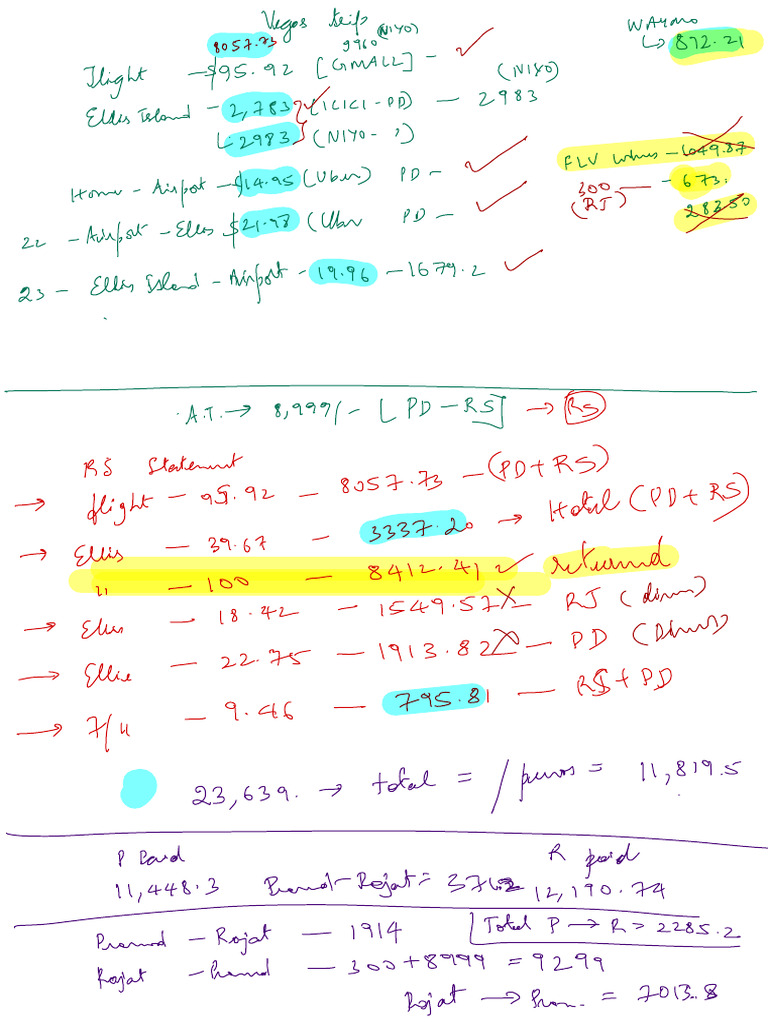 Vegas trip
WAYmo
↳ 872.21
8057.73
9960 (NIYO)
Flight — $95.92 [GMALL] — ✓
Ellis Island — 2,783 (ICICI-PD) — 2983 (NIYO)
↳ 2983 (NIYO- ")
FLV — 1049.87
Home - Airport — $14.95 (Uber) PD — ✓
300 (RJ) — 673.
283.50
22 — Airport — Ellis $21.98 (Uber PD — ✓
23 — Ellis Island — Airport — 19.96 — 1679.2 ✓
A.T. → 8,999/- [PD — RS] → RS
RS Statement
→ flight — 95.92 — 8057.73 — (PD+RS)
→ Ellis — 39.67 — 3337.20 → Hotel (PD+RS)
" — 100 — 8412.41 ✓ returned
→ Ellis — 18.42 — 1549.57 X RJ (dinner)
→ Ellie — 22.75 — 1913.82 X — PD (Dinner)
→ 7/11 — 9.46 — 795.81 — RS+PD
23,639. → total = /person = 11,819.5
P Paid
R paid
11,448.3 Pramod - Rajat = 371.2 12,190.74
Pramod — Rajat — 1914
Total P → R > 2285.2
Rajat — Pramod — 300+8999 = 9299
Rajat → Pram. = 7013.8